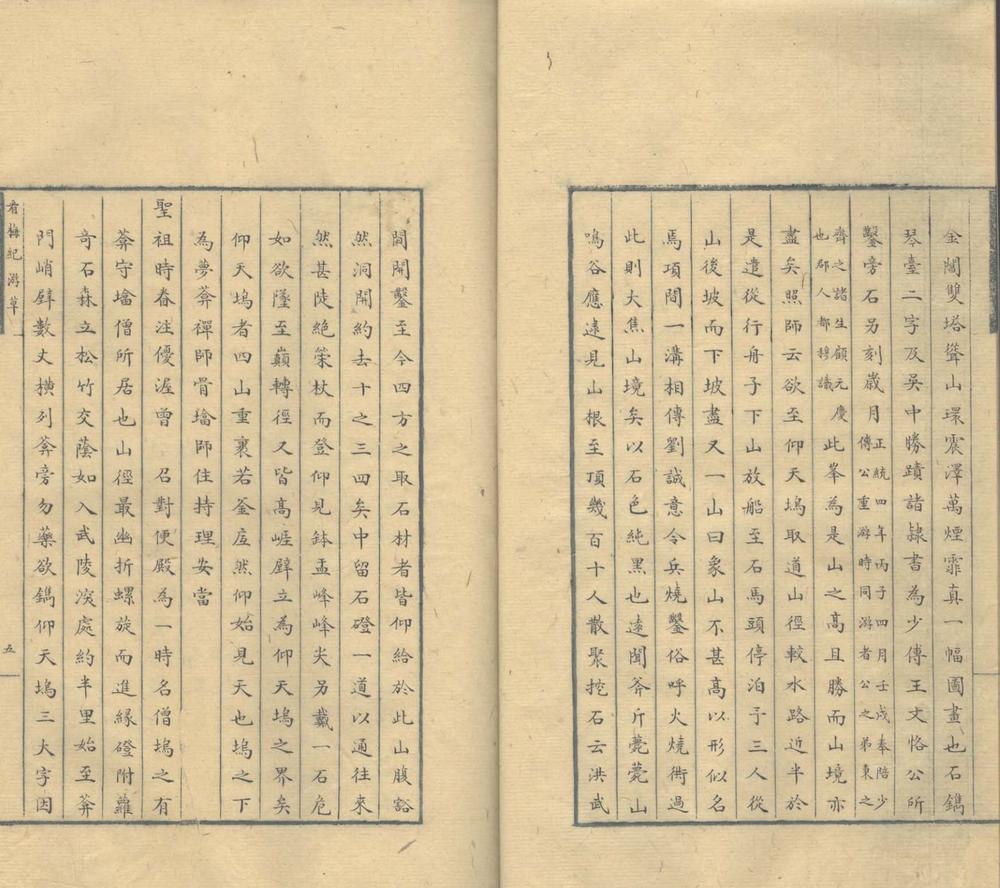 金閶雙塔聳山環震澤萬煙霏真一幅圖畫也石鐫
琴臺二字及吳中勝蹟諸隸書為少傳王文恪公所
鑿旁石另刻歲月正統四年丙子四月壬戌奉陪少
傳公重游時同游者公之弟東之
齊之諸生顧元慶
也郡人都穆議
此峯為是山之高且勝而山境亦
盡矣照師云欲至仰天塢取道山徑較水路近半於
是遣從行舟子下山放船至石馬頭停泊予三人從
山後坡而下坡盡又一山曰象山不甚高以形似名
馬項間一溝相傳劉誠意令兵燒鑿俗呼火燒衖過
此則大焦山境矣以石色純黑也遠聞斧斤薨薨山
鳴谷應遠見山根至頂幾百十人散聚挖石云洪武
間開鑿至今四方之取石材者皆仰給於此山腹豁
然洞開約去十之三四矣中留石磴一道以通往來
然甚陡絶策杖而登仰見鉢盂峰峰尖另戴一石危
如欲墜至巔轉徑又皆高崕壁立為仰天塢之界矣
仰天塢者四山重裹若釜底然仰始見天也塢之下
為夢葊禪師骨墖師住持理安當
聖祖時眷注優渥曾 召對便殿為一時名僧塢之有
葊守墖僧所居也山徑最幽折螺旋而進緣磴附蘿
奇石森立松竹交蔭如入武陵深處約半里始至葊
門峭壁數丈橫列葊旁勿藥欲鐫仰天塢三大字因
看梅紀游草
五